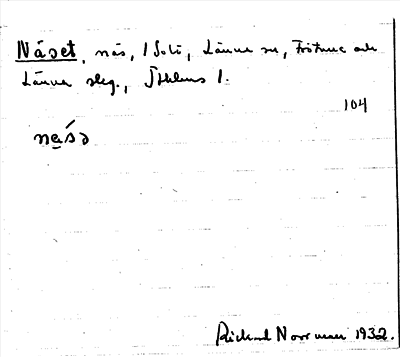 Näset, näs, i Solö, Länna sn, Frötuna och
Länna slg., Sthlms l.
104
Rickard Norrman 1932.